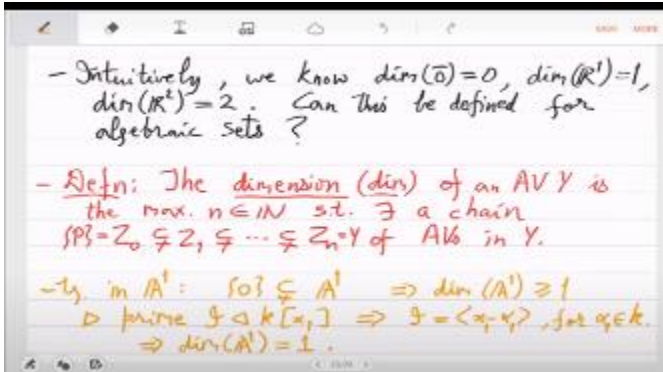 - Intuitively, we know dim(0̄)=0, dim(ℝ¹)=1,
dim(ℝ²)=2. Can this be defined for
algebraic sets?
- Defn: The dimension (dim) of an AV Y is
the max. n∈ℕ s.t. ∃ a chain
{P}=Z₀ ⊊ Z₁ ⊊ ⋯ ⊊ Zₙ=Y of AVs in Y.
- Eg. in 𝔸¹: {0} ⊊ 𝔸¹ ⇒ dim(𝔸¹) ≥ 1
▷ prime I ◁ k[x₁] ⇒ I = <x₁-α₁>, for α₁∈k.
⇒ dim(𝔸¹) = 1.